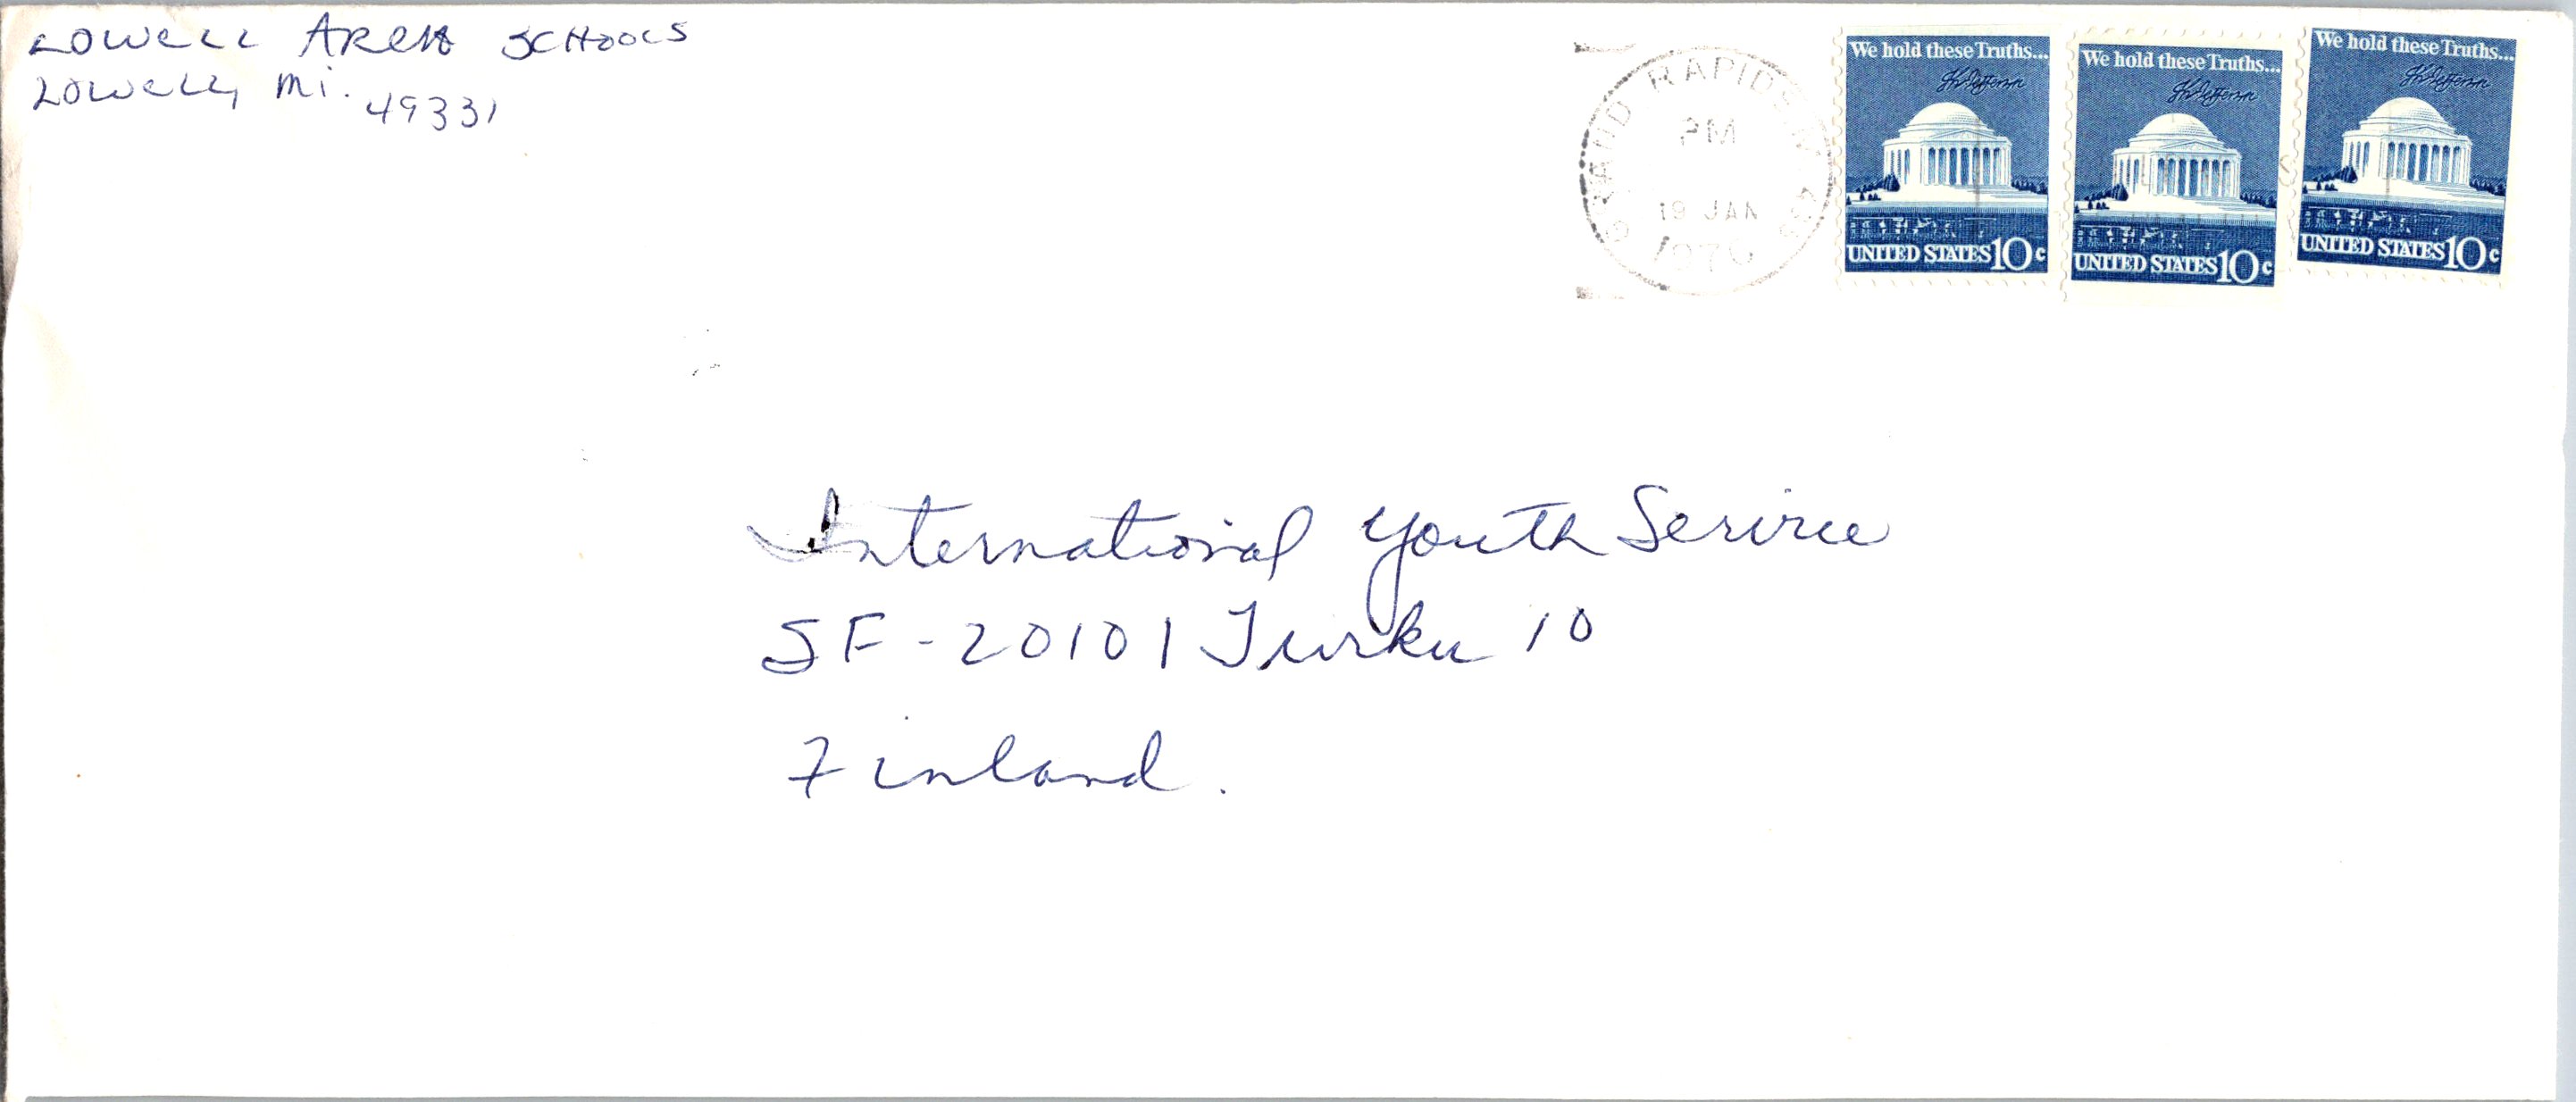 LOWELL AREA SCHOOLS
LOWELL, Mi. 49331
GRAND RAPIDS
PM
19 JAN
1976
We hold these Truths...
Th Jefferson
UNITED STATES 10c
We hold these Truths...
Th Jefferson
UNITED STATES 10c
We hold these Truths...
Th Jefferson
UNITED STATES 10c
International Youth Service
SF-20101 Turku 10
Finland.